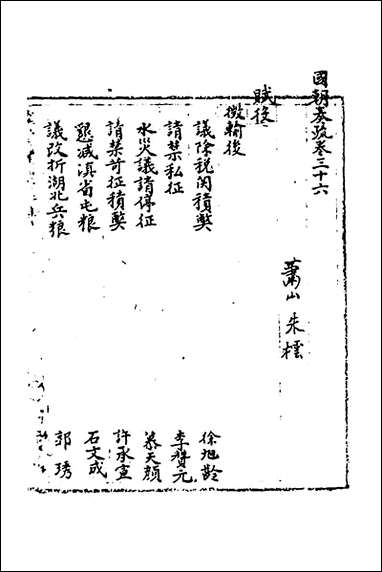 國朝奏疏卷三十六
蕭山朱橒
賦役
徵輸後
議除税関積弊 徐旭齡
請禁私征 李贊元
水災議請停征 慕天顔
請禁苛征積弊 許承宣
懇减滇省屯粮 石文成
議改折湖北兵粮 郭琇